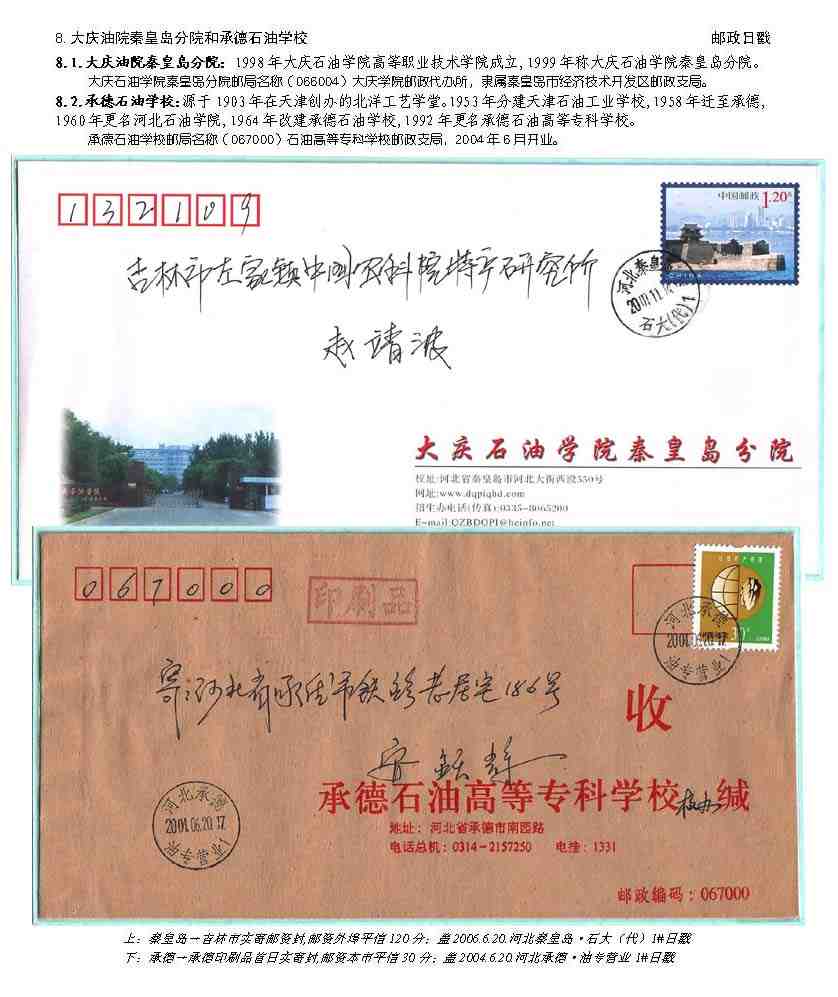 8. 大庆油院秦皇岛分院和承德石油学校 邮政日戳
8.1.大庆油院秦皇岛分院：1998年大庆石油学院高等职业技术学院成立,1999年称大庆石油学院秦皇岛分院。
大庆石油学院秦皇岛分院邮局名称（066004）大庆学院邮政代办所，隶属秦皇岛市经济技术开发区邮政支局。
8.2.承德石油学校:源于1903年在天津创办的北洋工艺学堂。1953年分建天津石油工业学校,1958年迁至承德,
1960年更名河北石油学院,1964年改建承德石油学校,1992年更名承德石油高等专科学校。
承德石油学校邮局名称（067000）石油高等专科学校邮政支局，2004年6月开业。
132109
中国邮政 1.20元
吉林市左家镇中国农科院特产研究所
河北秦皇岛
石大(代)1
赵靖波
大庆石油学院秦皇岛分院
校址:河北省秦皇岛市河北大街西段550号
网址:www.dqpiqhd.com
招生办电话(传真):0335-8065200
E-mail:QZBDQPI@heinfo.net
067000
印刷品
30
河北承德
2004.06.20.17
寄:河北省承德市铁路老居宅186号
收
承德石油高等专科学校 校办 缄
河北承德
2004.06.20.17
地址：河北省承德市南园路
电话总机：0314-2157250 电挂：1331
邮政编码：067000
上：秦皇岛→吉林市实寄邮资封,邮资外埠平信120分；盖2006.6.20.河北秦皇岛·石大（代）1#日戳
下：承德→承德印刷品首日实寄封,邮资本市平信30分；盖2004.6.20河北承德·油专营业1#日戳